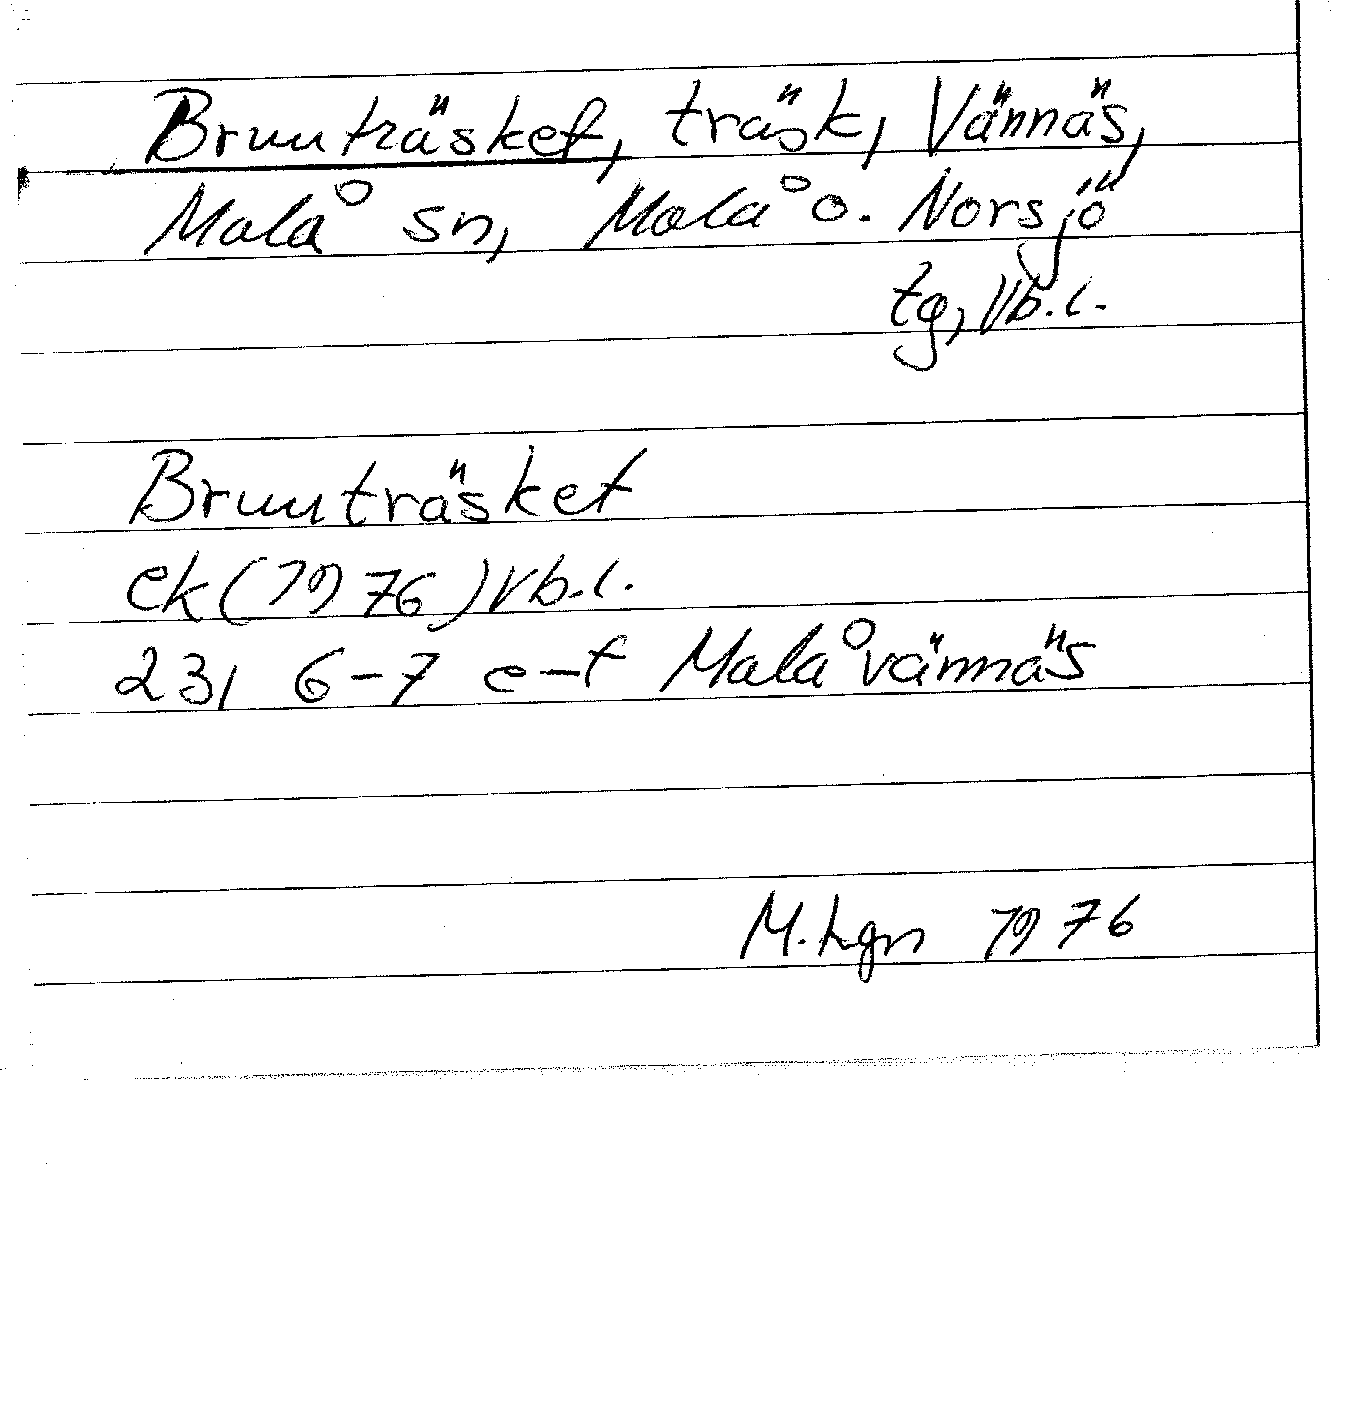 Brunträsket, träsk, Vännäs,
Malå sn, Malå o. Norsjö
tg, Vb.l.
Brunträsket
ek (1976) Vb.l.
23I 6-7 e-f Malåvännäs
M. hgn 1976